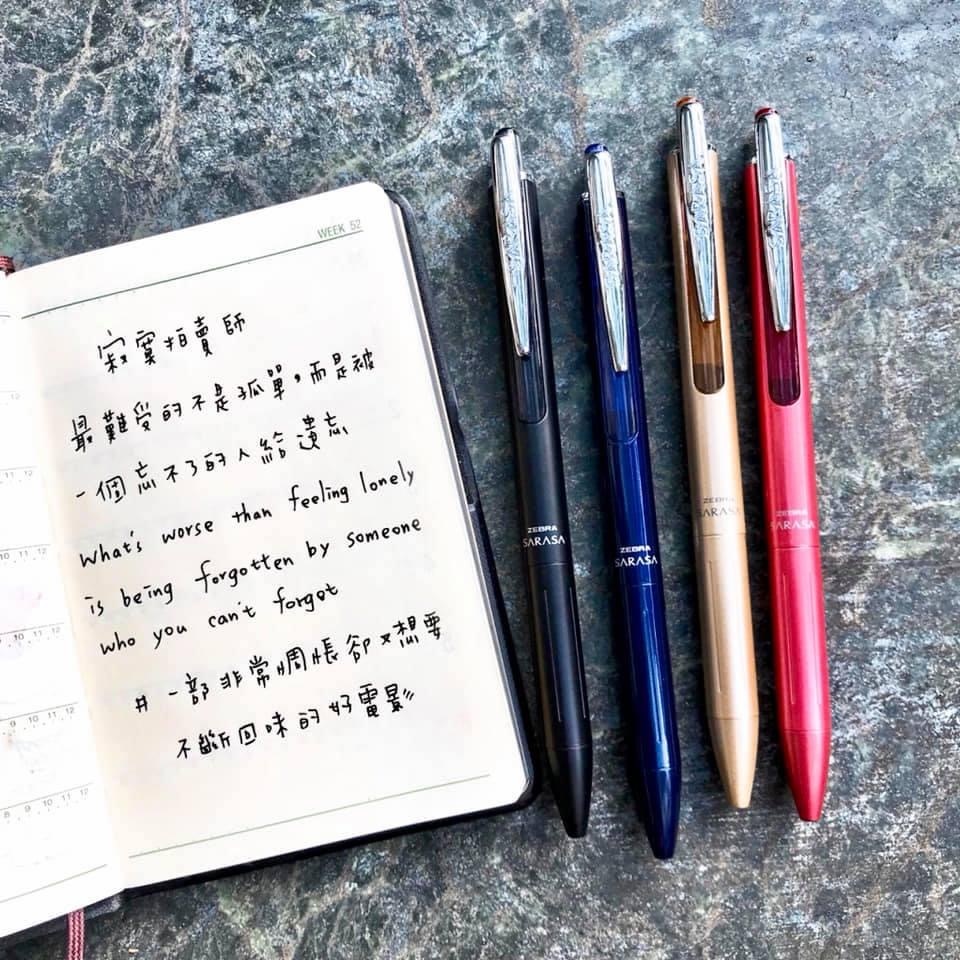 WEEK 52
寂寞拍賣師
最難受的不是孤單，而是被
一個忘不了的人給遺忘
What's worse than feeling lonely
is being forgotten by someone
who you can't forget
# 一部非常惆悵卻又想要
不斷回味的好電影
10 11 12
9 10 11 12
8 9 10 11 12
ZEBRA
SARASA
ZEBRA
SARASA
ZEBRA
SARASA
ZEBRA
SARASA